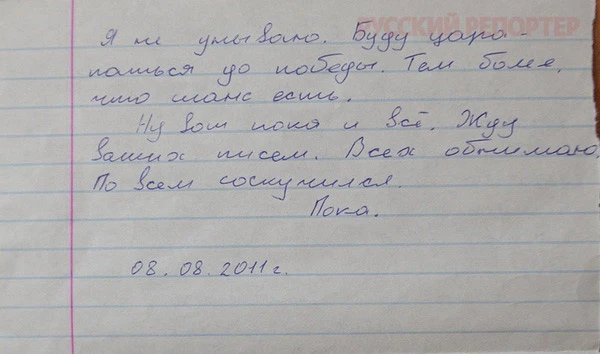 РУССКИЙ РЕПОРТЕР
Я не унываю. Буду цара-
паться до победы. Тем более,
что шанс есть.
Ну вот пока и всё. Жду
ваших писем. Всех обнимаю.
По всем соскучился.
Пока.
08.08.2011г.